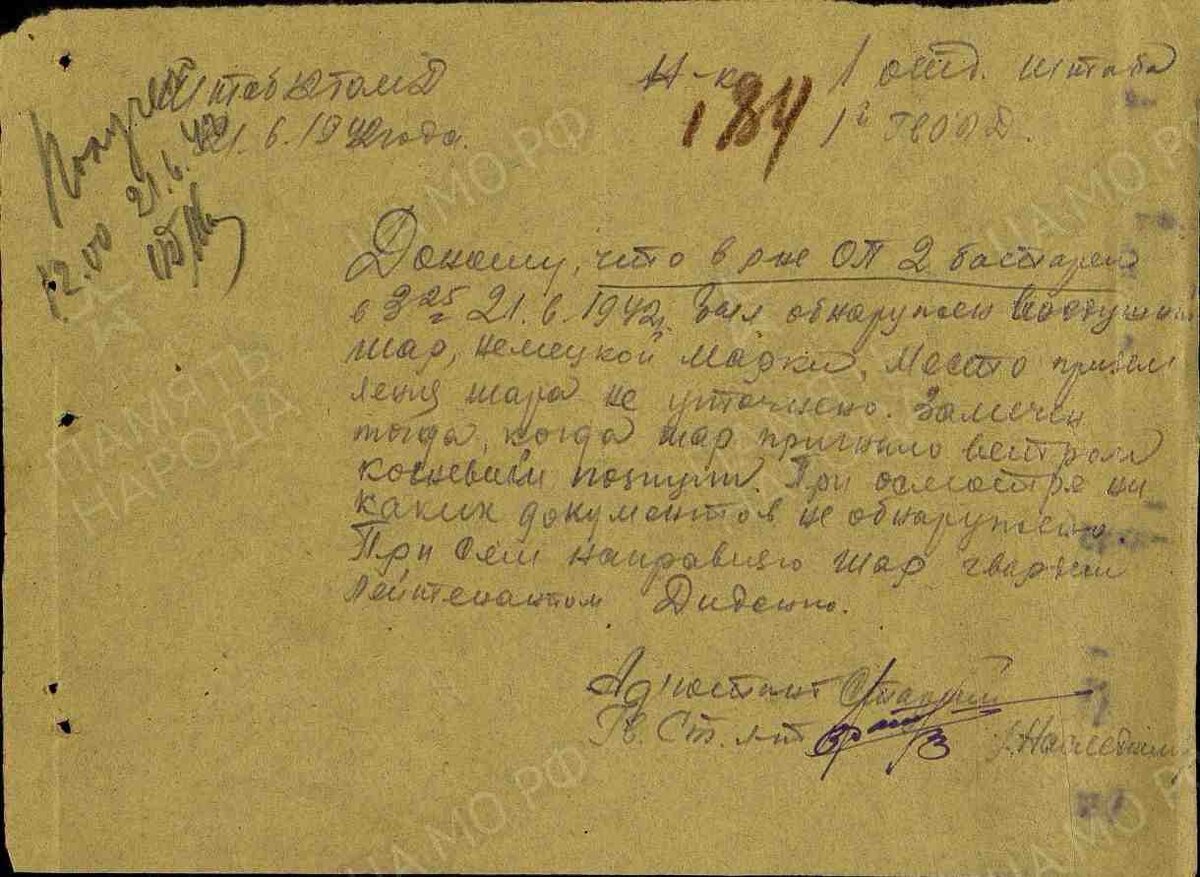 Получен
12.00 21.6.42
Штаб
21.6.1942 года.
Н-ку 1 отд. штаба
184
Доношу, что в р-не ОП 2 батареи
в 3 25 21.6.1942г. был обнаружен воздушн
шар, немецкой марки. Место призем
ления шара не уточнено. Замечен
тогда, когда шар пригнало ветром
к огневым позиции. При осмотре ни
каких документов не обнаружено.
При сем направляю шар гвардии
лейтенантом Диденко.
Адъютант Старший
Гв. Ст. л-т
ПАМЯТЬ
НАРОДА
ЦА МО РФ